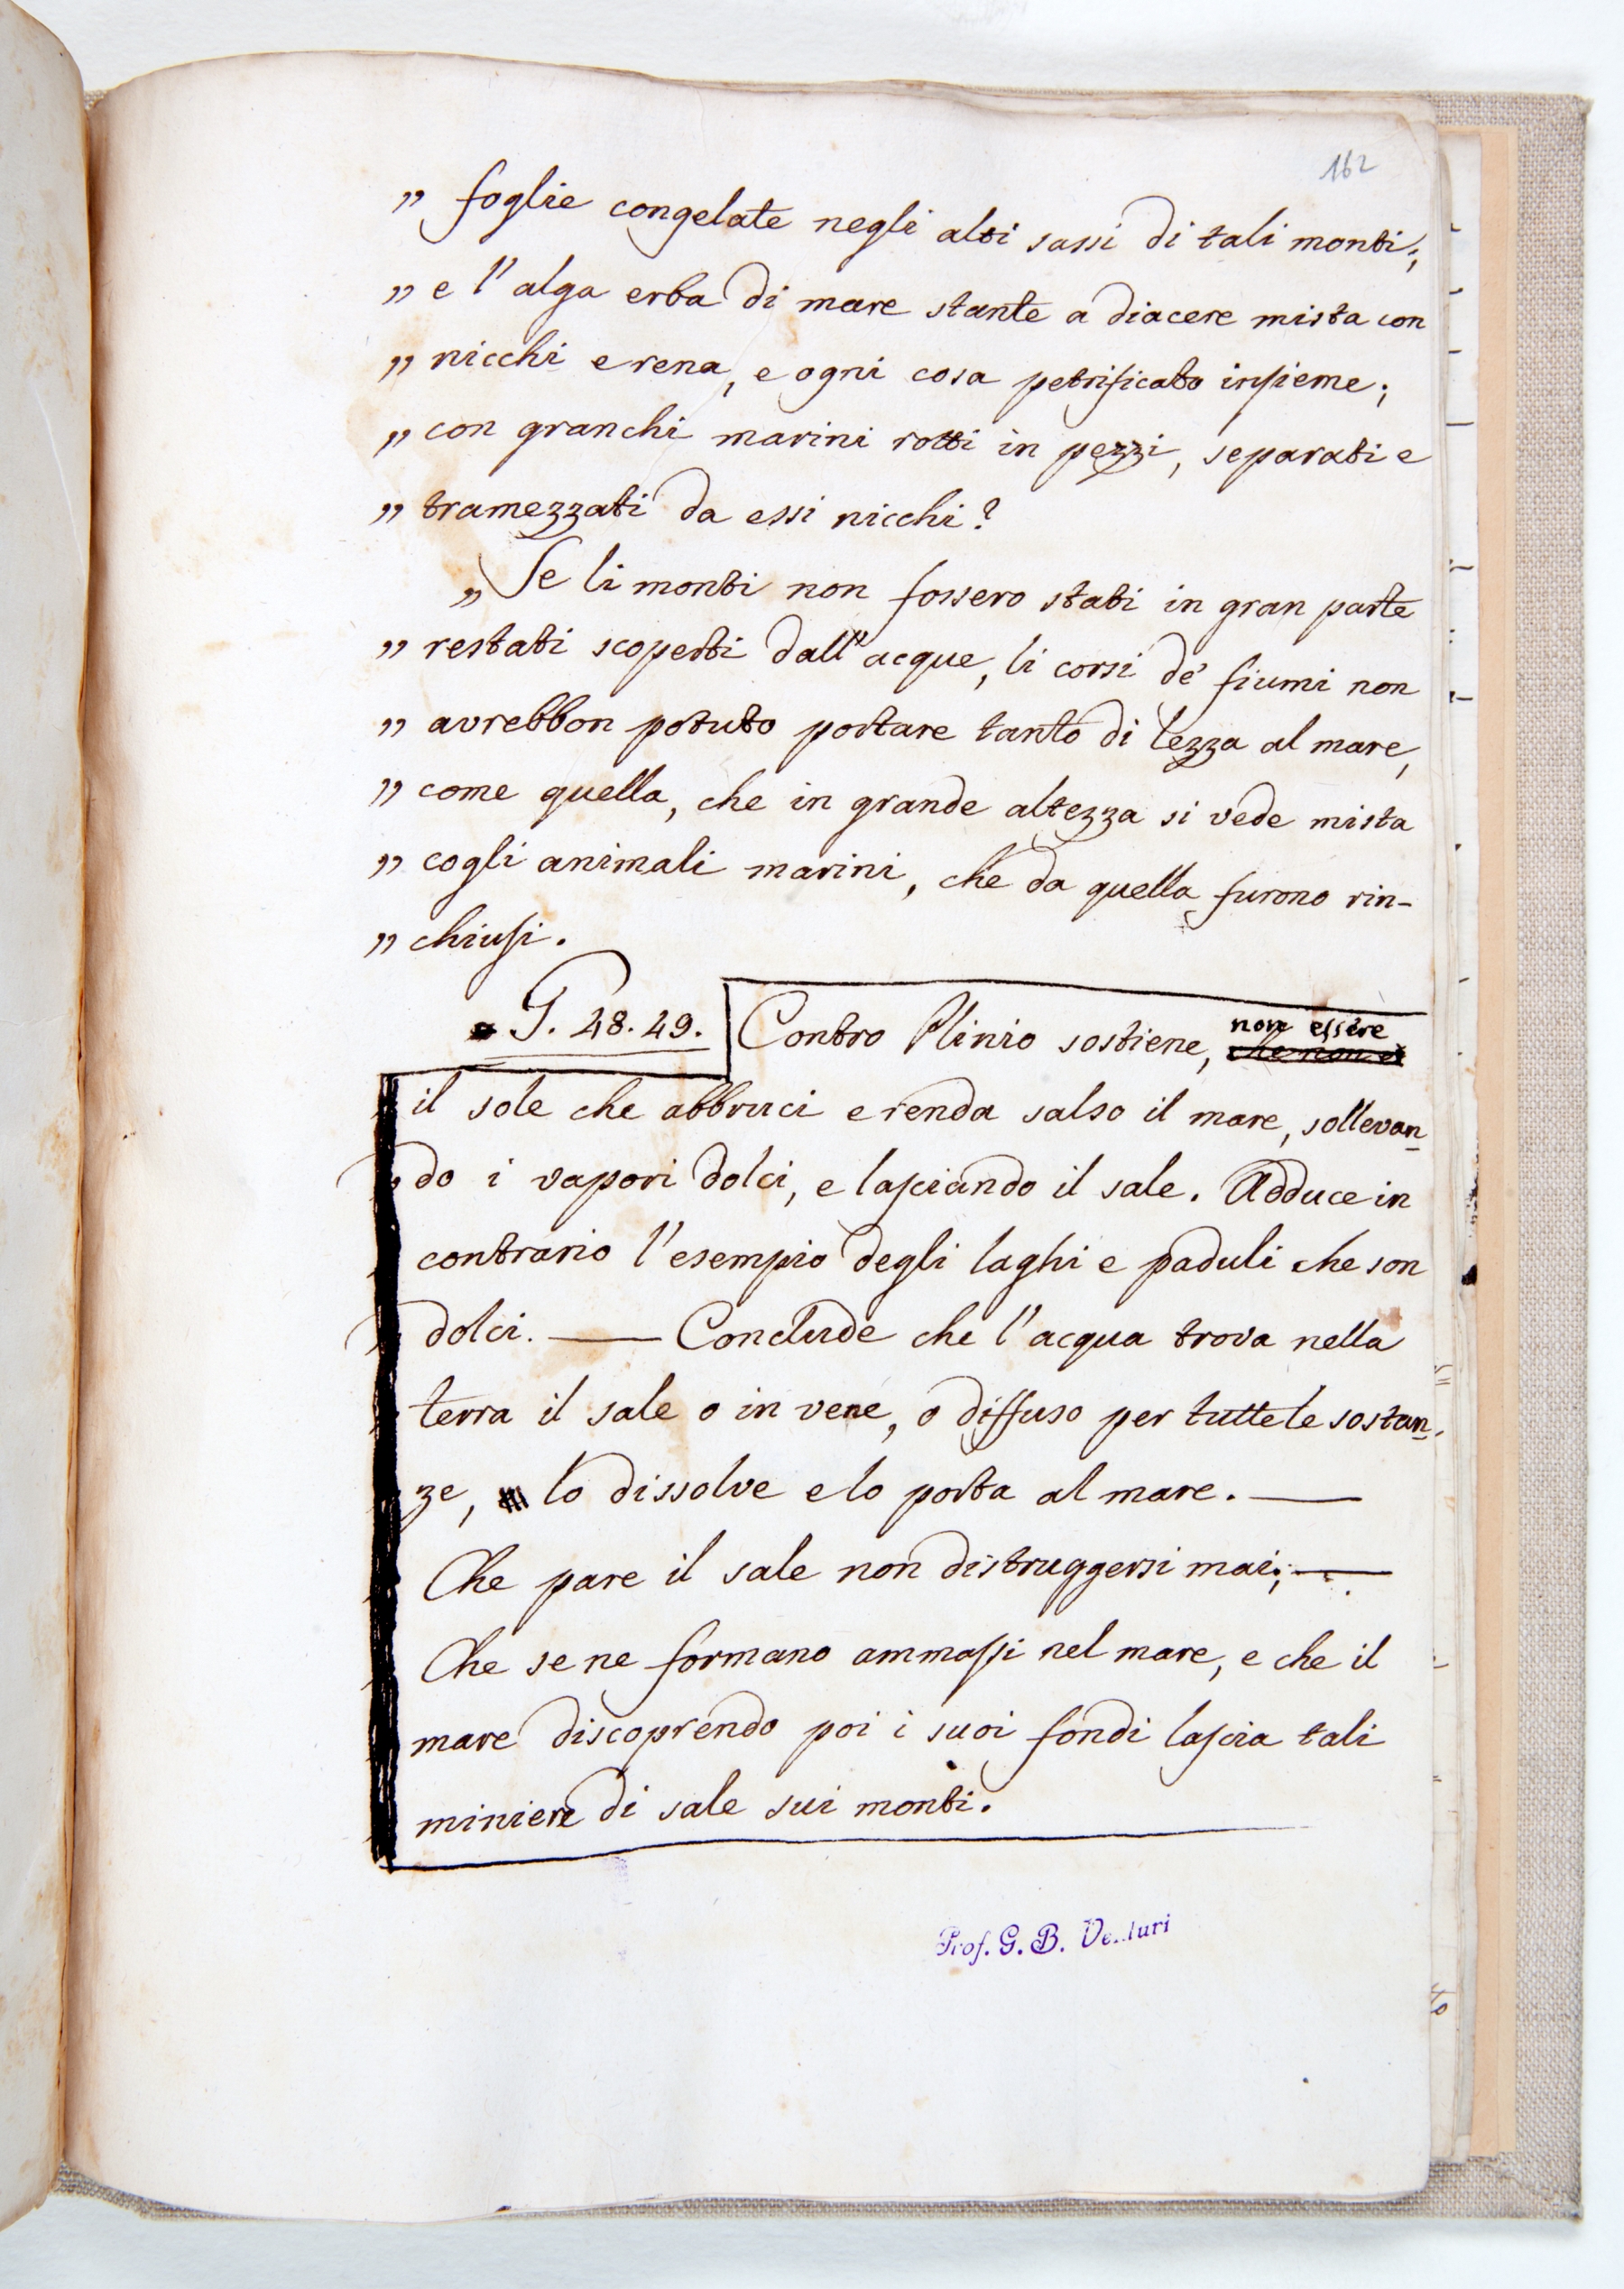 162
„ foglie congelate negli alti sassi di tali monti;
„ e l'alga erba di mare stante a diacere mista con
„ nicchi e rena, e ogni cosa petrificato insieme;
„ con granchi marini rotti in pezzi, separati e
„ tramezzati da essi nicchi?
„ Se li monti non fossero stati in gran parte
„ restati scoperti dall'acque, li corsi de' fiumi non
„ avrebbon potuto portare tanto di lezza al mare,
„ come quella, che in grande altezza si vede mista
„ cogli animali marini, che da quella furono rin-
„ chiusi.
G. 48. 49. Contro Plinio sostiene, non essere
il sole che abbruci e renda salso il mare, sollevan
do i vapori dolci, e lasciando il sale. Adduce in
contrario l'esempio degli laghi e paduli che son
dolci. — Conclude che l'acqua trova nella
terra il sale o in vene, o diffuso per tutte le sostan
ze, lo dissolve e lo porta al mare. —
Che pare il sale non distruggersi mai; —
Che se ne formano ammassi nel mare, e che il
mare discoprendo poi i suoi fondi lascia tali
miniere di sale sui monti.
Prof. G. B. Venturi